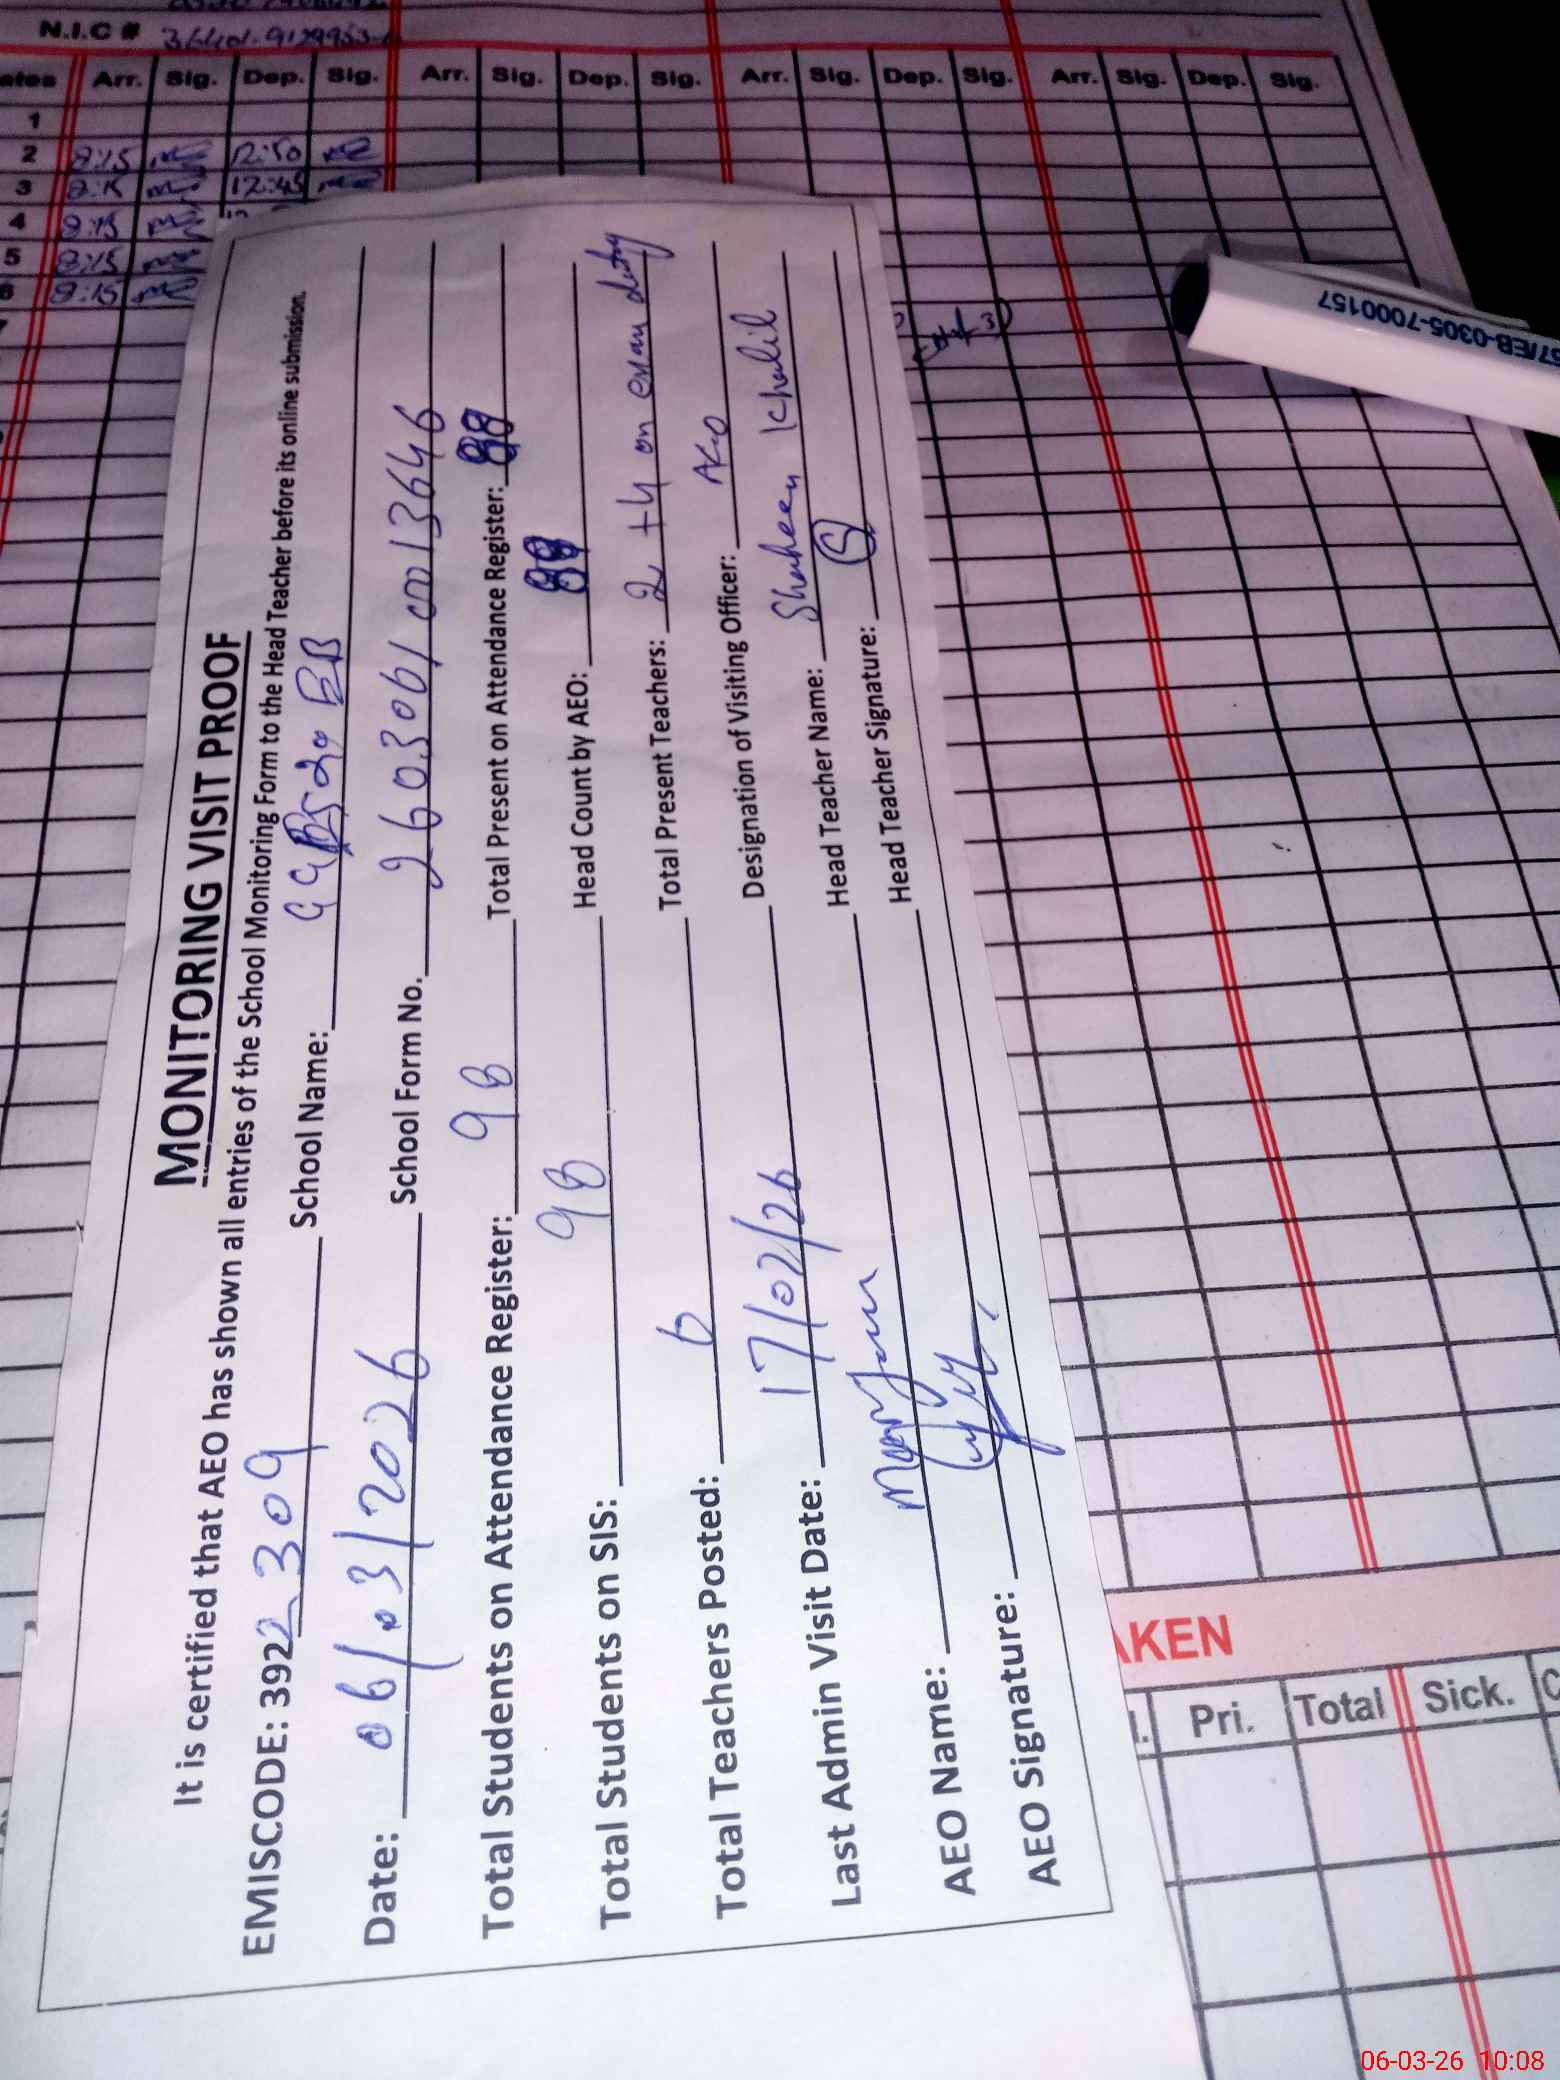 N.I.C #
ates Arr. Sig. Dep. Sig. Arr. Sig. Dep. Sig. Arr. Sig. Dep. Sig. Arr. Sig. Dep. Sig.
1
2 8:15 12:50
3 8:15 12:45
4 8:15
5 8:15
6 8:15
MONITORING VISIT PROOF
It is certified that AEO has shown all entries of the School Monitoring Form to the Head Teacher before its online submission.
EMISCODE: 3922309 School Name:
Date: 06/03/2026 School Form No. 260306/0013646
Total Students on Attendance Register: 98 Total Present on Attendance Register: 88
Total Students on SIS: 98 Head Count by AEO: 88
Total Teachers Posted: 6 Total Present Teachers: 2 +4 on exam duty
Last Admin Visit Date: 17/02/26 Designation of Visiting Officer: AEO
AEO Name: Head Teacher Name: Shaheen Khalil
AEO Signature: Head Teacher Signature:
57/EB-0305-7000157
AKEN
Pri. Total Sick.
06-03-26 10:08